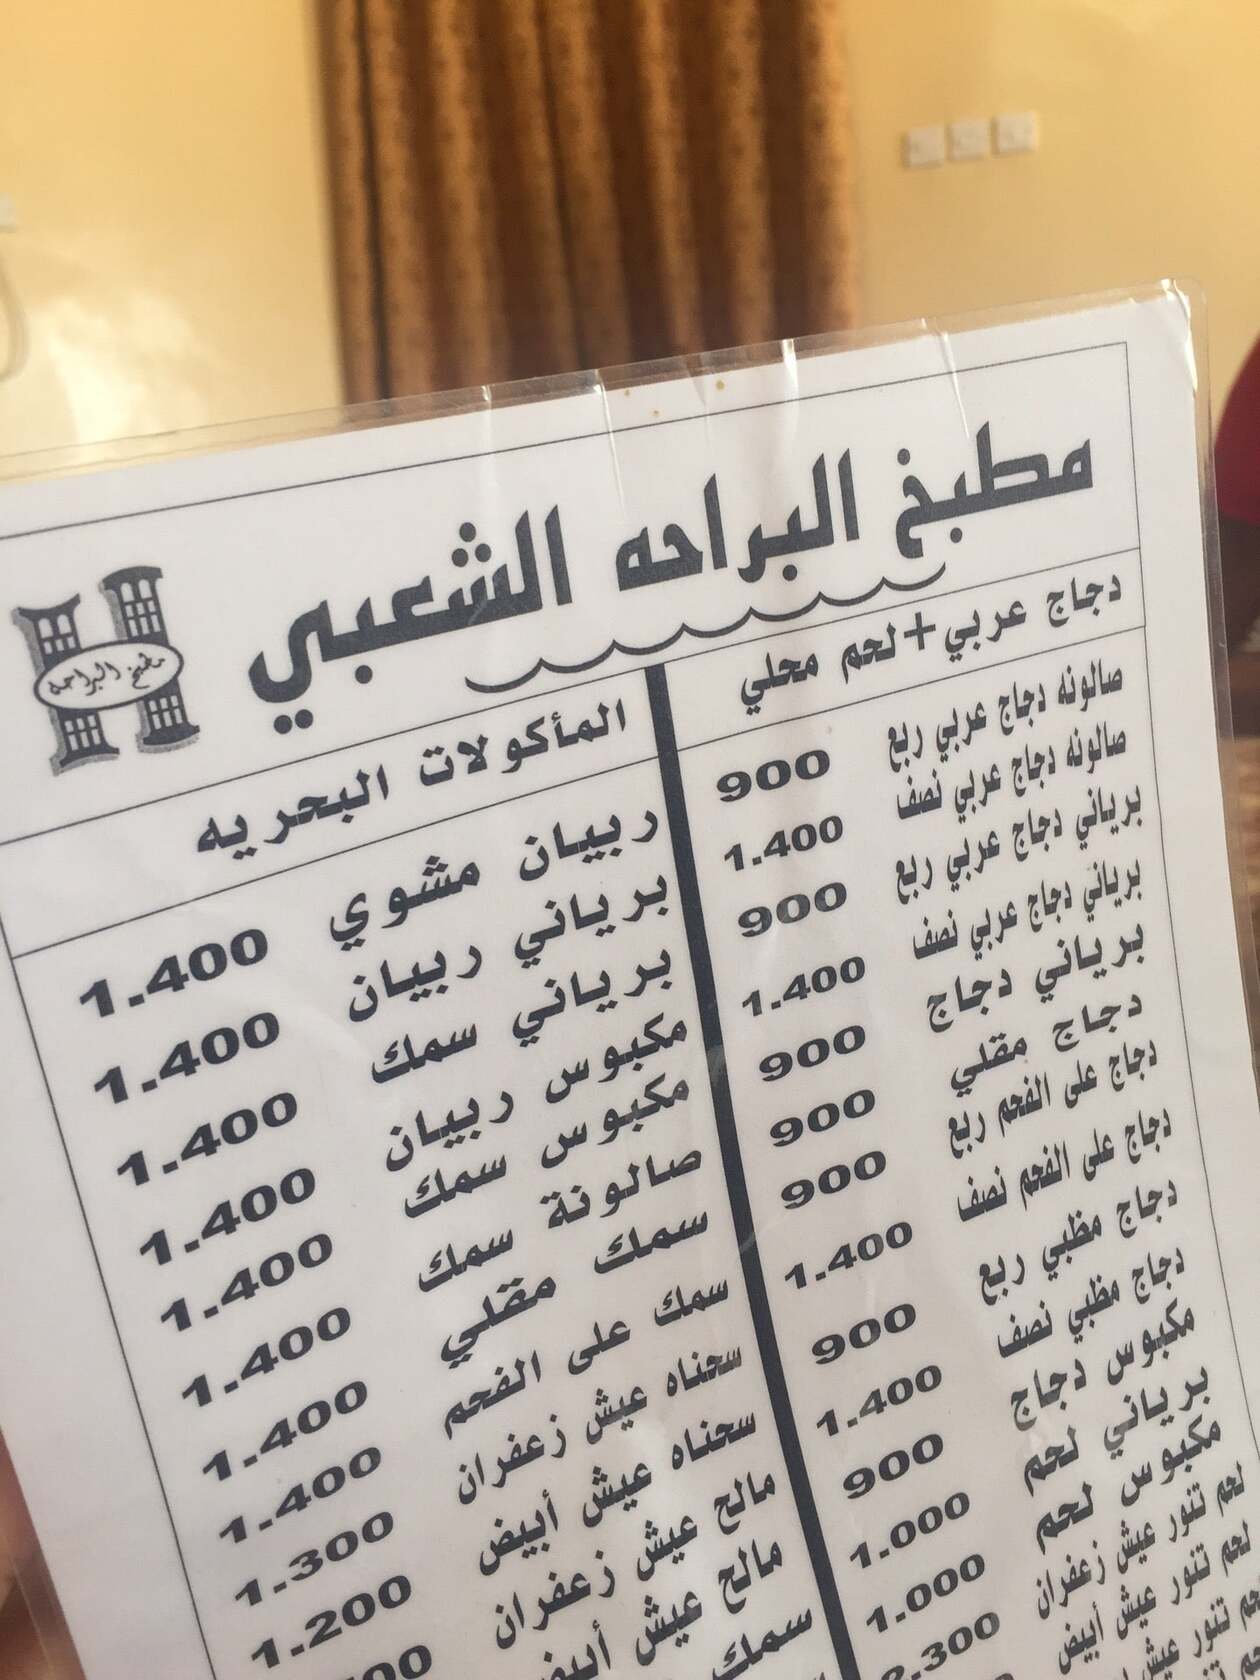 مطبخ البراحه الشعبي
مطبخ البراحه
دجاج عربي+لحم محلي
صالونه دجاج عربي ربع 900
صالونه دجاج عربي نصف 1.400
برياني دجاج عربي ربع 900
برياني دجاج عربي نصف 1.400
برياني دجاج 900
دجاج مقلي 900
دجاج على الفحم ربع 900
دجاج على الفحم نصف 1.400
دجاج مظبي ربع 900
دجاج مظبي نصف 1.400
مكبوس دجاج 900
برياني لحم 1.000
مكبوس لحم 1.000
لحم تنور عيش زعفران
لحم تنور عيش أبيض
المأكولات البحريه
ربيان مشوي 1.400
برياني ربيان 1.400
برياني سمك 1.400
مكبوس ربيان 1.400
مكبوس سمك 1.400
صالونة سمك 1.400
سمك مقلي 1.400
سمك على الفحم 1.400
سحناه عيش زعفران 1.300
سحناه عيش أبيض 1.200
مالح عيش زعفران
مالح عيش أبيض
سمك